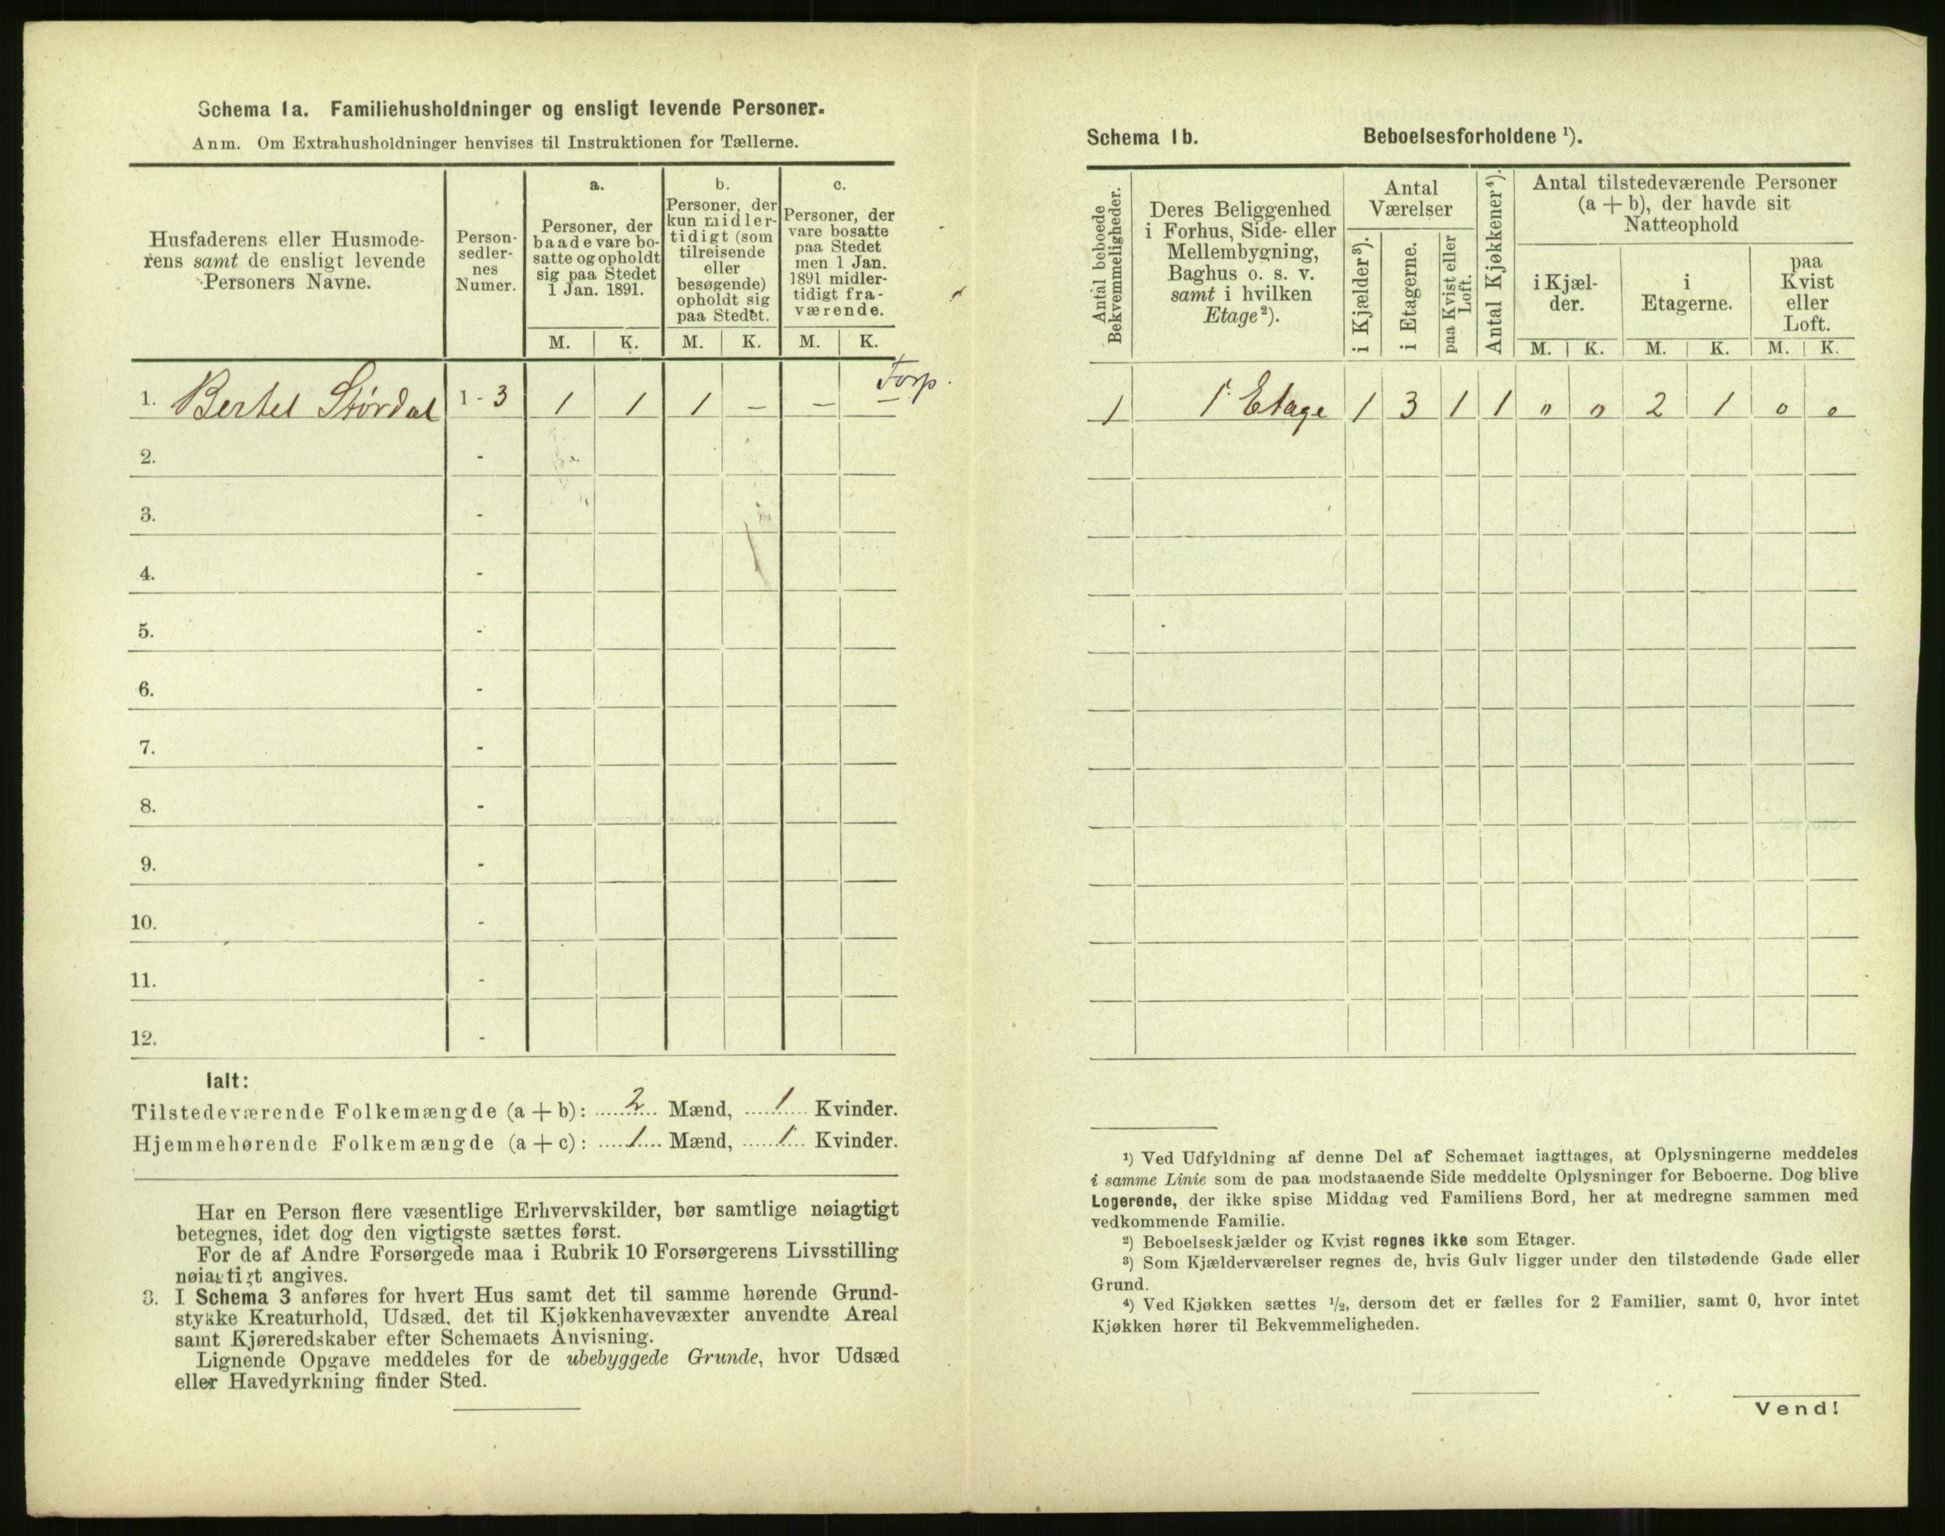 Schema 1a. Familiehusholdninger og ensligt levende Personer.
Anm. Om Extrahusholdninger henvises til Instruktionen for Tællerne.
Husfaderens eller Husmode-
rens samt de ensligt levende
Personers Navne.
Person-
sedler-
nes
Numer.
a.
Personer, der
baade vare bo-
satte og opholdt
sig paa Stedet
1 Jan. 1891.
b.
Personer, der
kun midler-
tidigt (som
tilreisende
eller
besøgende)
opholdt sig
paa Stedet.
c.
Personer, der
vare bosatte
paa Stedet
men 1 Jan.
1891 midler-
tidigt fra-
værende.
M. K. M. K. M. K.
1. Bertel Størdal 1 - 3 1 1 1 – – – Torp.
2. -
3. -
4. -
5. -
6. -
7. -
8. -
9. -
10. -
11. -
12. -
Ialt:
Tilstedeværende Folkemængde (a + b): 2 Mænd, 1 Kvinder.
Hjemmehørende Folkemængde (a + c): 1 Mænd, 1 Kvinder.
Har en Person flere væsentlige Erhvervskilder, bør samtlige nøiagtigt
betegnes, idet dog den vigtigste sættes først.
For de af Andre Forsørgede maa i Rubrik 10 Forsørgerens Livsstilling
nøiagtigt angives.
3. I Schema 3 anføres for hvert Hus samt det til samme hørende Grund-
stykke Kreaturhold, Udsæd, det til Kjøkkenhavevæxter anvendte Areal
samt Kjøreredskaber efter Schemaets Anvisning.
Lignende Opgave meddeles for de ubebyggede Grunde, hvor Udsæd
eller Havedyrkning finder Sted.
Schema 1b. Beboelsesforholdene ¹).
Antal beboede
Bekvemmeligheder.
Deres Beliggenhed
i Forhus, Side- eller
Mellembygning,
Baghus o. s. v.
samt i hvilken
Etage²).
Antal
Værelser
i Kjælder³).
i Etagerne.
paa Kvist eller
Loft.
Antal Kjøkkener⁴).
Antal tilstedeværende Personer
(a + b), der havde sit
Natteophold
i Kjæl-
der.
i
Etagerne.
paa
Kvist
eller
Loft.
M. K. M. K. M. K.
1 1. Etage 1 3 1 1 0 0 2 1 0 0
¹) Ved Udfyldning af denne Del af Schemaet iagttages, at Oplysningerne meddeles
i samme Linie som de paa modstaaende Side meddelte Oplysninger for Beboerne. Dog blive
Logerende, der ikke spise Middag ved Familiens Bord, her at medregne sammen med
vedkommende Familie.
²) Beboelseskjælder og Kvist regnes ikke som Etager.
³) Som Kjælderværelser regnes de, hvis Gulv ligger under den tilstødende Gade eller
Grund.
⁴) Ved Kjøkken sættes ½, dersom det er fælles for 2 Familier, samt 0, hvor intet
Kjøkken hører til Bekvemmeligheden.
Vend!